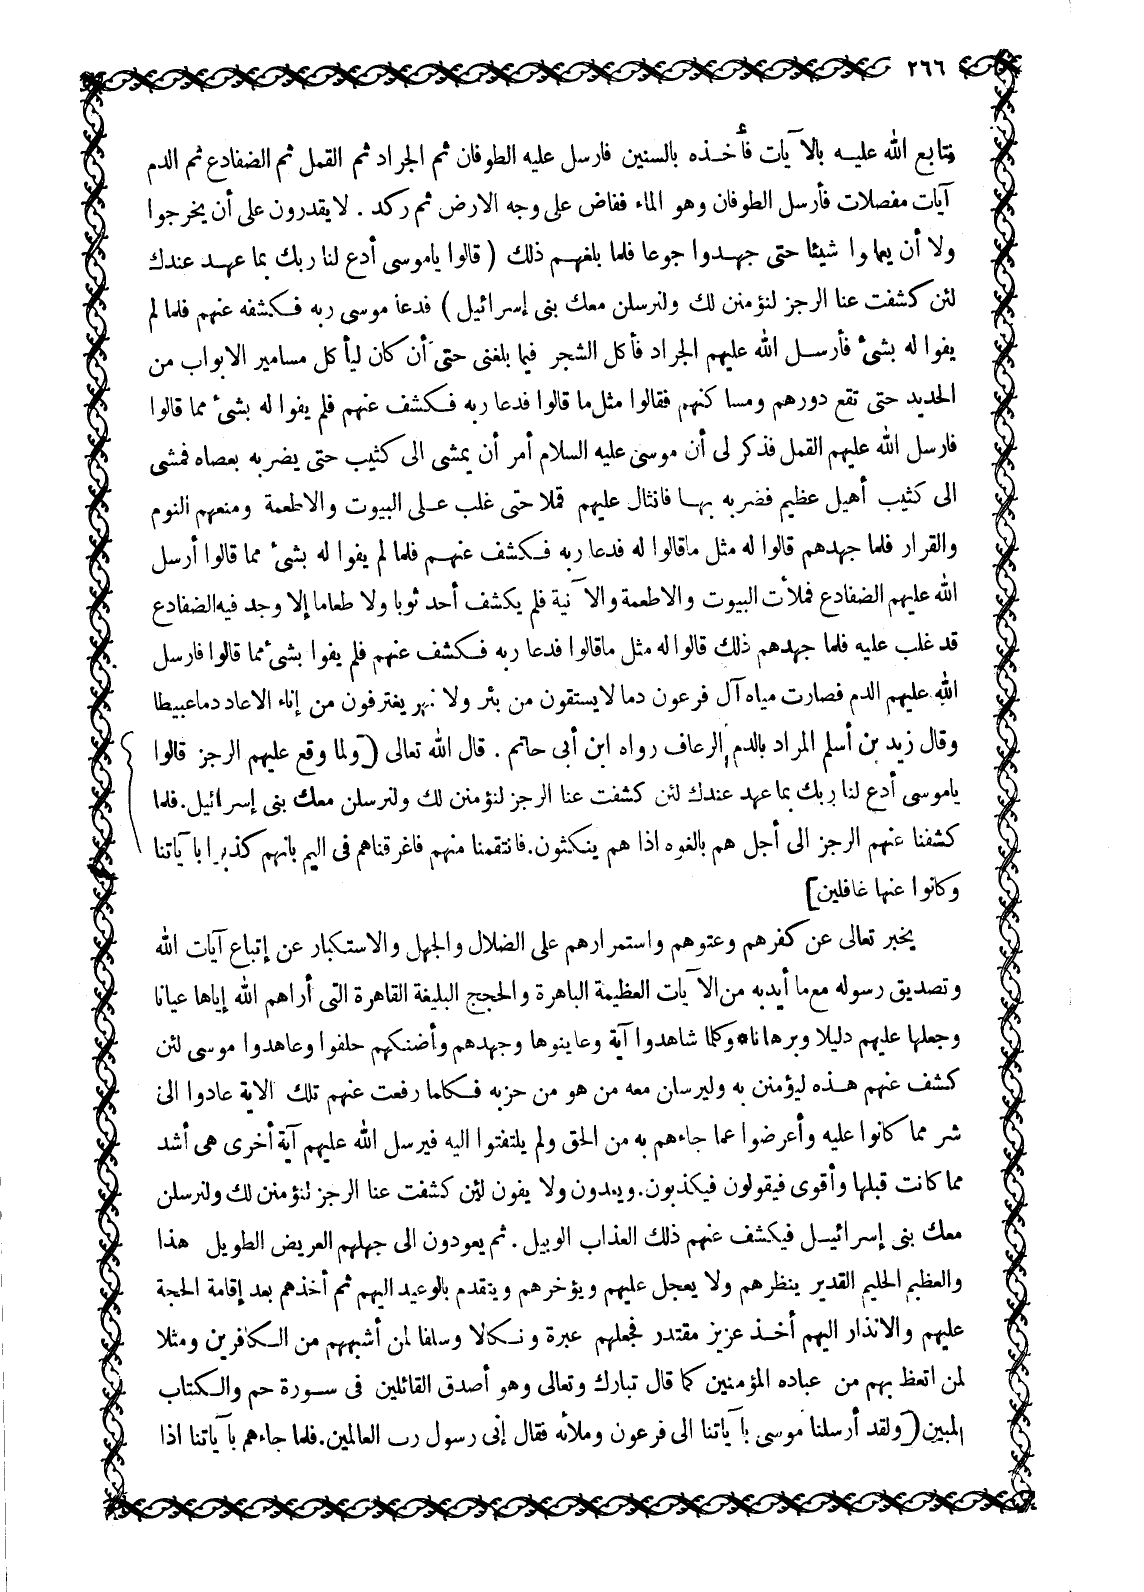 ٢٦٦
فتابع الله عليه بالآيات فأخذه بالسنين فارسل عليه الطوفان ثم الجراد ثم القمل ثم الضفادع ثم الدم
آيات مفصلات فأرسل الطوفان وهو الماء ففاض على وجه الارض ثم ركد . لا يقدرون على أن يخرجوا
ولا أن يعملوا شيئا حتى جهدوا جوعا فلما بلغهم ذلك ( قالوا ياموسى أدع لنا ربك بما عهد عندك
لئن كشفت عنا الرجز لنؤمنن لك ولنرسلن معك بنى إسرائيل ) فدعا موسى ربه فكشفه عنهم فلما لم
يفوا له بشئ فأرسل الله عليهم الجراد فأكل الشجر فيما بلغنى حتى أن كان ليأكل مسامير الابواب من
الحديد حتى تقع دورهم ومساكنهم فقالوا مثل ما قالوا فدعا ربه فكشف عنهم فلم يفوا له بشئ مما قالوا
فارسل الله عليهم القمل فذكر لى أن موسى عليه السلام أمر أن يمشى الى كثيب حتى يضربه بعصاه فمشى
الى كثيب أهيل عظيم فضربه بها فانثال عليهم قملا حتى غلب على البيوت والاطعمة ومنعهم النوم
والقرار فلما جهدهم قالوا له مثل ماقالوا له فدعا ربه فكشف عنهم فلما لم يفوا له بشئ مما قالوا أرسل
الله عليهم الضفادع فملأت البيوت والاطعمة والآنية فلم يكشف أحد ثوبا ولا طعاما إلا وجد فيه الضفادع
قد غلب عليه فلما جهدهم ذلك قالوا له مثل ماقالوا فدعا ربه فكشف عنهم فلم يفوا بشئ مما قالوا فارسل
الله عليهم الدم فصارت مياه آل فرعون دما لا يستقون من بئر ولا نهر يغترفون من إناء الاعاد دما عبيطا
وقال زيد بن أسلم المراد بالدم الرعاف رواه ابن أبى حاتم . قال الله تعالى ( ولما وقع عليهم الرجز قالوا
ياموسى أدع لنا ربك بما عهد عندك لئن كشفت عنا الرجز لنؤمنن لك ولنرسلن معك بنى إسرائيل. فلما
كشفنا عنهم الرجز الى أجل هم بالغوه اذا هم ينكثون. فانتقمنا منهم فاغرقناهم فى اليم بانهم كذبوا بآياتنا
وكانوا عنها غافلين]
يخبر تعالى عن كفرهم وعتوهم واستمرارهم على الضلال والجهل والاستكبار عن إتباع آيات الله
وتصديق رسوله مع ما أيد به من الآيات العظيمة الباهرة والحجج البليغة القاهرة التى أراهم الله إياها عيانا
وجعلها عليهم دليلا وبرهانا * وكلما شاهدوا آية وعاينوها وجهدهم وأضنكهم حلفوا وعاهدوا موسى لئن
كشف عنهم هذه ليؤمنن به وليرسلن معه من هو من حزبه فكلما رفعت عنهم تلك الاية عادوا الى
شر مما كانوا عليه وأعرضوا عما جاءهم به من الحق ولم يلتفتوا اليه فيرسل الله عليهم آية أخرى هى أشد
مما كانت قبلها وأقوى فيقولون فيكذبون. ويعدون ولا يفون لئن كشفت عنا الرجز لنؤمنن لك ولنرسلن
معك بنى إسرائيل فيكشف عنهم ذلك العذاب الوبيل . ثم يعودون الى جهلهم العريض الطويل هذا
والعظيم الحليم القدير ينظرهم ولا يعجل عليهم ويؤخرهم ويتقدم بالوعيد اليهم ثم أخذهم بعد إقامة الحجة
عليهم والانذار اليهم أخذ عزيز مقتدر فجعلهم عبرة ونكالا وسلفا لمن أشبههم من الكافرين ومثلا
لمن اتعظ بهم من عباده المؤمنين كما قال تبارك وتعالى وهو أصدق القائلين فى سورة حم والكتاب
المبين ( ولقد أرسلنا موسى بآياتنا الى فرعون وملأه فقال إنى رسول رب العالمين. فلما جاءهم بآياتنا اذا